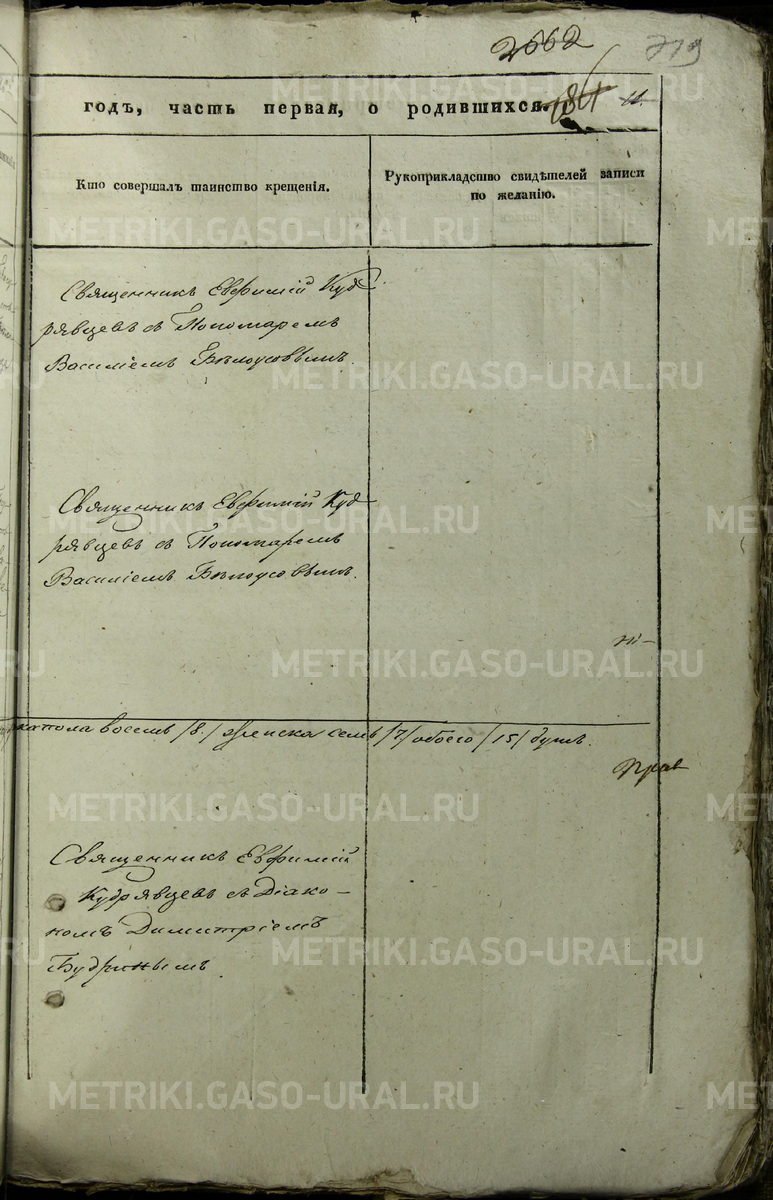 2662 719
годъ, часть первая, о родившихся. 11.
Кто совершалъ таинство крещенія.
Рукоприкладство свидѣтелей записи
по желанію.
Священникъ Евфимій Куд
рявцевъ съ Пономаремъ
Василіемъ Бѣлоусовымъ.
Священникъ Евфимій Куд
рявцевъ съ Пономаремъ
Василіемъ Бѣлоусовымъ.
пола восемь /8./ женска семь /7/ обоего /15/ душъ.
Священникъ Евфимій
Кудрявцевъ съ Діако-
номъ Димитріемъ
Будринымъ
METRIKI.GASO-URAL.RU